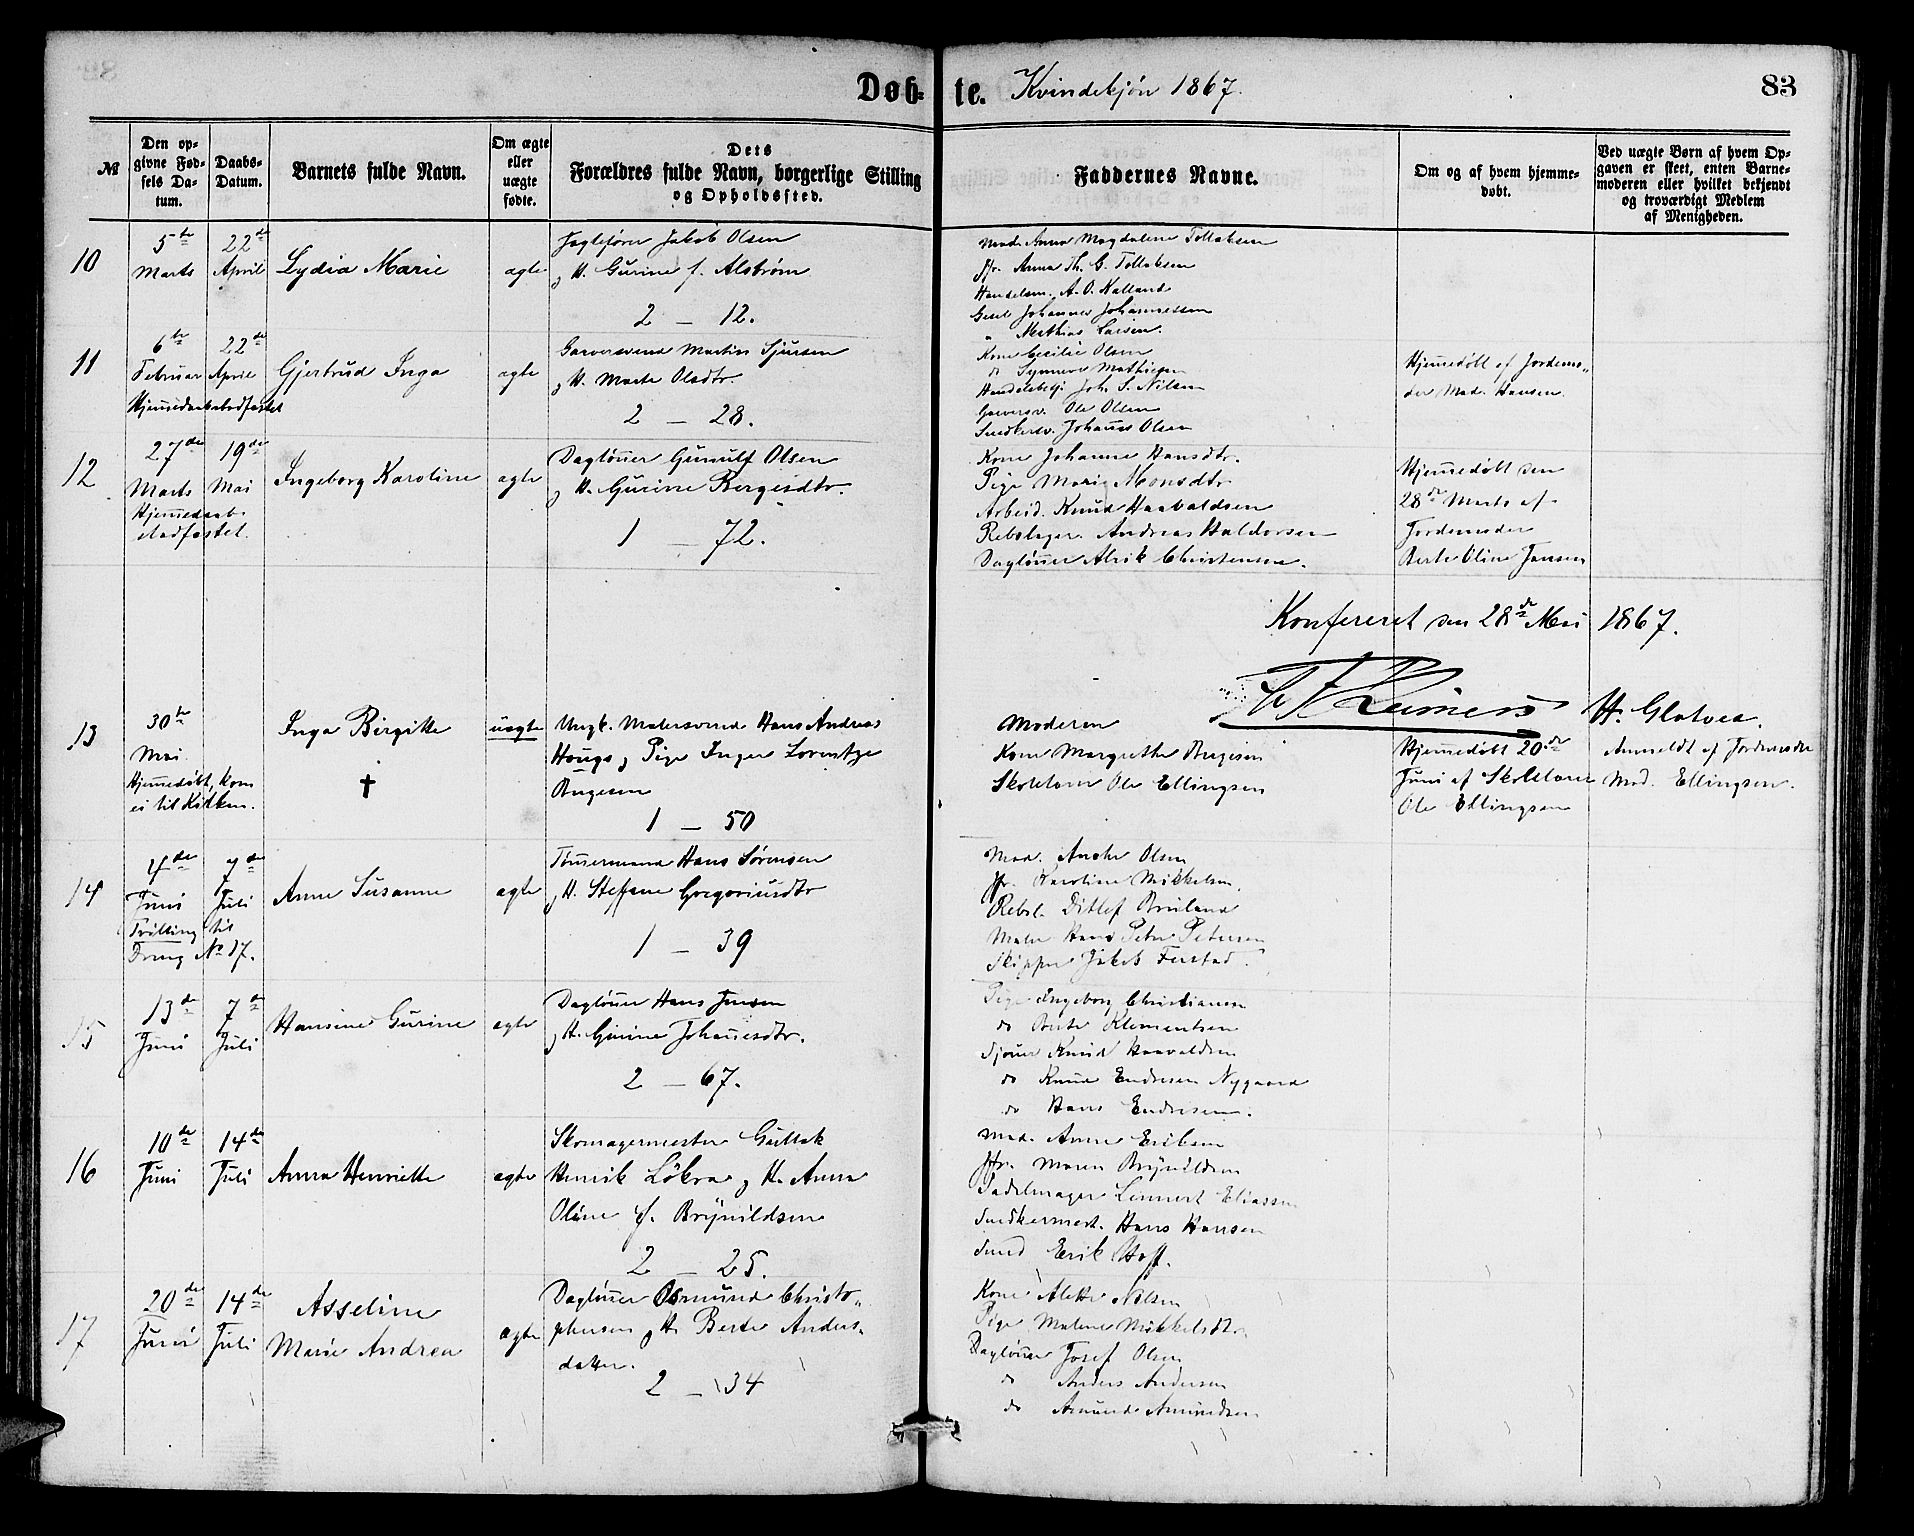 Døbte. Kvindekjøn 1867. 83
№
Den opgivne Fødsels Datum.
Daabs-Datum.
Barnets fulde Navn.
Om ægte eller uægte fødte.
Dets Forældres fulde Navn, borgerlige Stilling og Opholdssted.
Faddernes Navne.
Om og af hvem hjemmedøbt.
Ved uægte Børn af hvem Opgaven er skeet, enten Barnemoderen eller hvilket bekjendt og troværdigt Medlem af Menigheden.
10
5te Marts
22de April
Lydia Marie
ægte
Jakob Olsen
og H. Gurine f. Alstrøm
2 – 12.
Mad. Anna Magdalene Tollaksen
Jfr. Anna Th. G. Tollaksen
Handelsm. A. O. Kalland
Johannes Johannessen
" Mathias Larsen.
11
6te Februar
22de April
Hjemmedaab stadfæstet
Gjertrud Inga
ægte
Garversvend Martin Sjursen
og H. Marte Olsdtr.
2 – 28.
Kone Cecilie Olsen
do Synneve Mathiesen
Handelsbetj. Joh. S. Nilsen
Garversv. Ole Olsen
Snedkersv. Johannes Olsen
Hjemmedøbt af Jordemo-
der Mad. Hansen.
12
27de Marts
19de Mai
Hjemmedaab
stadfæstet.
Ingeborg Karoline
ægte
Dagløner Gunulf Olsen
og H. Gurine Bergesdtr.
1 – 72.
Kone Johanne Hansdtr.
Pige Mari Monsdtr
Arbeid. Knud Haavaldsen
Rebslager Andreas Haldorsen
Dagløner Alrik Christensen.
Hjemmedøbt den
28de Marts af
Jordemoder
Berte Oline Jansen
Konfereret den 28de Mai 1867.
Reimers H. Glatved.
13
30te
Mai
Hjemmedøbt, kom
ei til Kirken.
Inga Birgitte
†
uægte
Ungk. Malersvend Hans Andreas
Hougs og Pige Inger Lorentze
Bugesen
1 – 50
Moderen
Kone Margrethe Bugesen
Skolelærer Ole Ellingsen
Hjemmedøbt 20de
Juni af Skolelærer
Ole Ellingsen
Anmeldt af Jordemoder
Mad. Ellingsen.
14
4de Juni
7de Juli
Tvilling til
Dreng No 17.
Anne Susanne
ægte
Tømmermand Hans Sørensen
og H. Steffane Gregoriusdtr
1 – 39
Mad. Anche Olsen
Jfr. Karoline Mikkelsen.
Rebsl. Ditlef Bruland
Maler Hans Peter Petersen
Skipper Jakob Furstad.
15
13de Juni
7de Juli
Hansine Gurine
ægte
Dagløner Hans Jensen
og H. Gurine Johannesdtr.
2 – 67.
Pige Ingeborg Christiansen
do Berte Klementsen
Knud Haavaldsen
do Knud Endresen Nygaard
do Hans Endresen.
16
10de Juni
14de Juli
Anna Henriette
ægte
Skomagermester Gullak
Henrik Løkra og H. Anna
Oline f. Brynildsen
2 – 25.
Mad. Anne Eriksen
Jfr. Maren Brynildsen
Sadelmager Lennert Eliassen
Snedkermest. Hans Hansen
Smed Erik Hoff.
17
20de Juni
14de Juli
Asseline
Marie Andrea
ægte
Dagløner Osmund Christo-
phersen og H. Berte Anders-
datter.
2 – 34
Kone Alette Nilsen
Pige Malene Mikkelsdtr.
Dagløner Josef Olsen
do Anders Andersen
do Amunde Amundsen